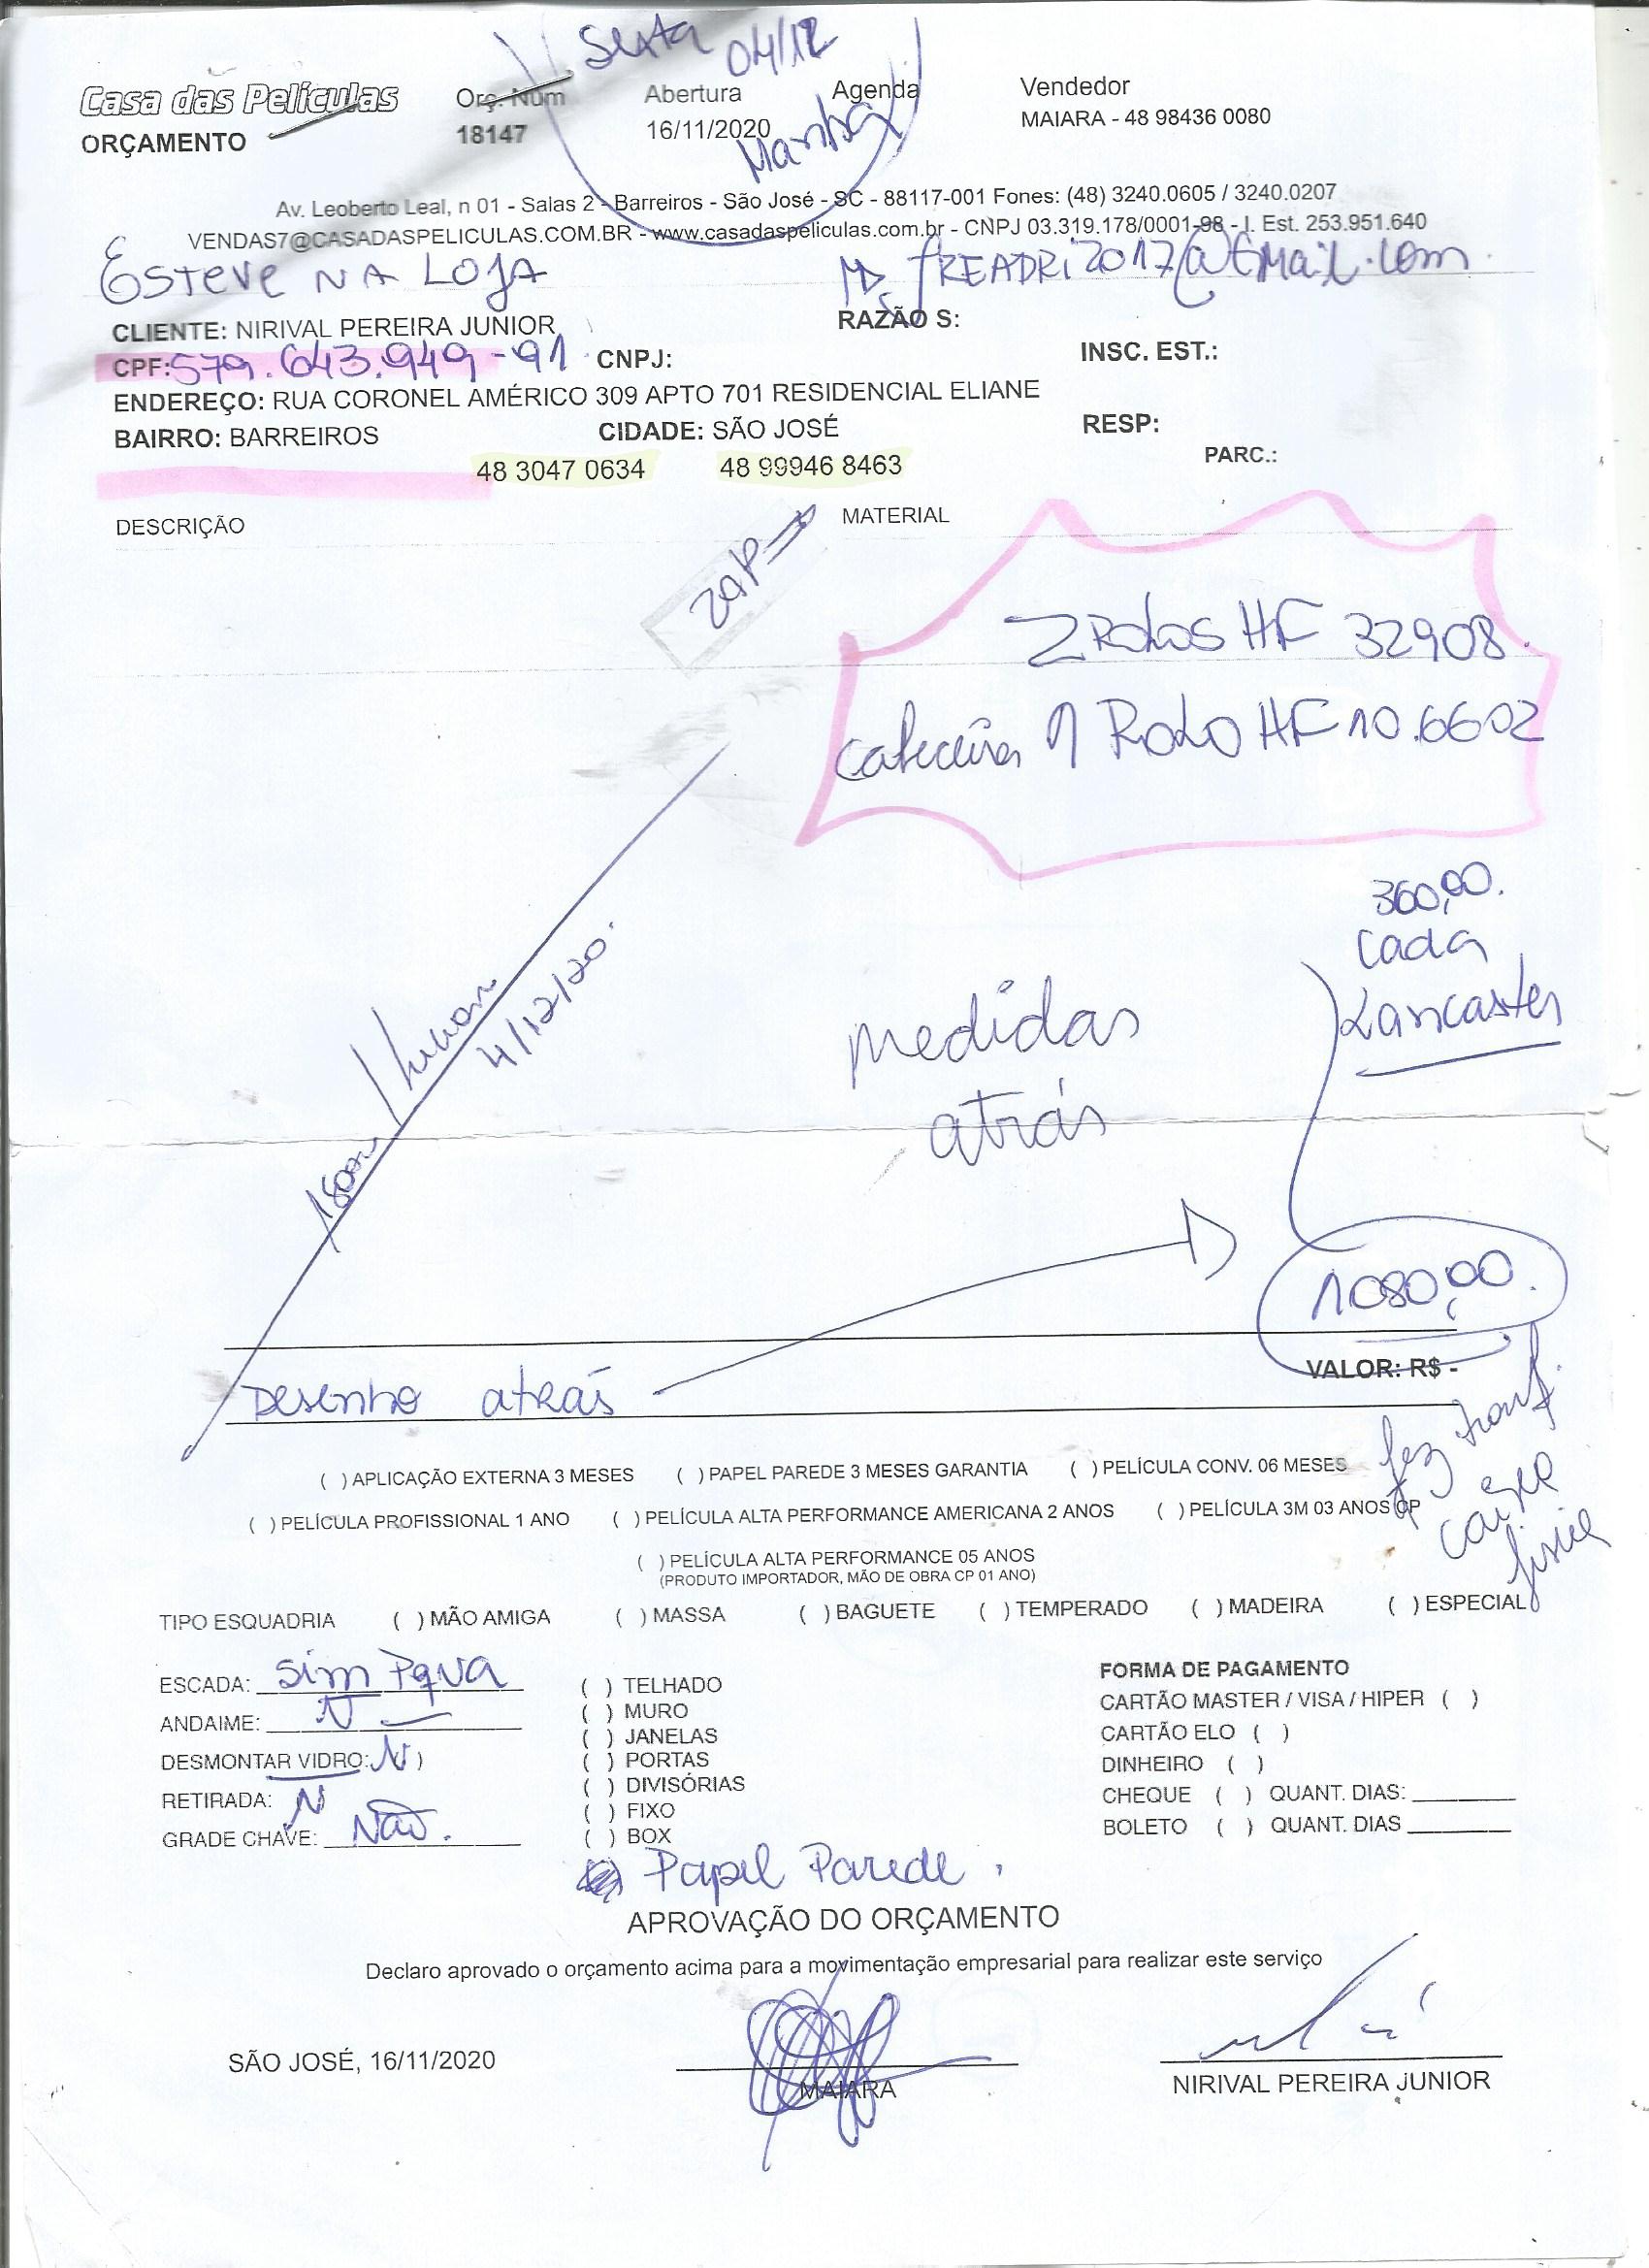 Sexta 04/12
Manhã
Casa das Películas
Orç. Num
Abertura
Agenda
Vendedor
ORÇAMENTO
18147
16/11/2020
MAIARA - 48 98436 0080
Av. Leoberto Leal, n 01 - Salas 2 - Barreiros - São José - SC - 88117-001 Fones: (48) 3240.0605 / 3240.0207
VENDAS7@CASADASPELICULAS.COM.BR - www.casadaspeliculas.com.br - CNPJ 03.319.178/0001-98 - I. Est. 253.951.640
ESTEVE NA LOJA
freadri2017@Gmail.com.
CLIENTE: NIRIVAL PEREIRA JUNIOR
RAZÃO S:
CPF: 579.643.949-91
CNPJ:
INSC. EST.:
ENDEREÇO: RUA CORONEL AMÉRICO 309 APTO 701 RESIDENCIAL ELIANE
BAIRRO: BARREIROS
CIDADE: SÃO JOSÉ
RESP:
48 3047 0634
48 99946 8463
PARC.:
DESCRIÇÃO
MATERIAL
zap
2 Rolos HF 32908.
cabeceira 1 Rolo HF 10.6602
360,00.
cada
Lancaster
4/12/20.
medidas
atrás
1080,00.
VALOR: R$ -
Desenho atrás
fez transf.
caixa
física
( ) APLICAÇÃO EXTERNA 3 MESES ( ) PAPEL PAREDE 3 MESES GARANTIA ( ) PELÍCULA CONV. 06 MESES
( ) PELÍCULA PROFISSIONAL 1 ANO ( ) PELÍCULA ALTA PERFORMANCE AMERICANA 2 ANOS ( ) PELÍCULA 3M 03 ANOS CP
( ) PELÍCULA ALTA PERFORMANCE 05 ANOS
(PRODUTO IMPORTADOR, MÃO DE OBRA CP 01 ANO)
TIPO ESQUADRIA ( ) MÃO AMIGA ( ) MASSA ( ) BAGUETE ( ) TEMPERADO ( ) MADEIRA ( ) ESPECIAL
ESCADA: Sim Pqna
ANDAIME: N
DESMONTAR VIDRO: N )
RETIRADA: N
GRADE CHAVE: Não.
( ) TELHADO
( ) MURO
( ) JANELAS
( ) PORTAS
( ) DIVISÓRIAS
( ) FIXO
( ) BOX
Papel Parede.
FORMA DE PAGAMENTO
CARTÃO MASTER / VISA / HIPER ( )
CARTÃO ELO ( )
DINHEIRO ( )
CHEQUE ( ) QUANT. DIAS:
BOLETO ( ) QUANT. DIAS
APROVAÇÃO DO ORÇAMENTO
Declaro aprovado o orçamento acima para a movimentação empresarial para realizar este serviço
SÃO JOSÉ, 16/11/2020
MAIARA
NIRIVAL PEREIRA JUNIOR